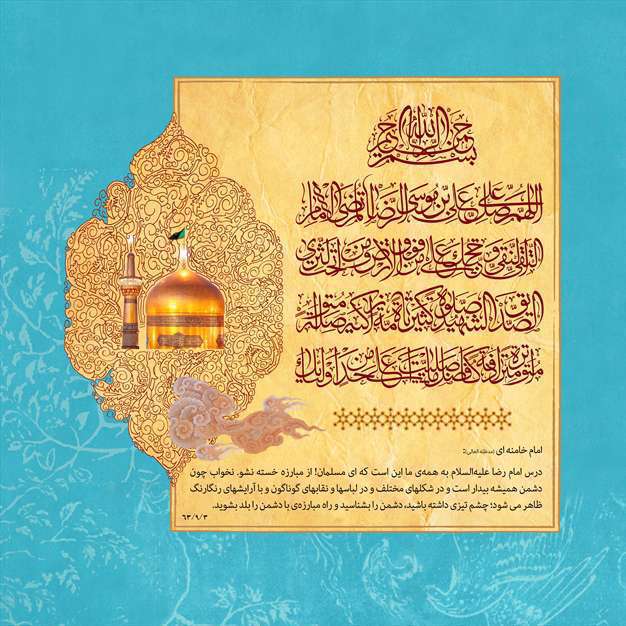 بسم الله الرحمن الرحیم
اللهم صل علی علی بن موسی الرضا المرتضی الامام
التقی النقی و حجتک علی من فوق الارض و من تحت الثری
الصدیق الشهید صلوة کثیرة تامة زاکیة متواصلة
متواترة مترادفة کافضل ما صلیت علی احد من اولیائک
امام خامنه ای (مدظله العالی):
درس امام رضا علیه‌السلام به همه‌ی ما این است که ای مسلمان! از مبارزه خسته نشو. نخواب چون
دشمن همیشه بیدار است و در شکلهای مختلف و در لباسها و نقابهای گوناگون و با آرایشهای رنگارنگ
ظاهر می شود؛ چشم تیزی داشته باشید، دشمن را بشناسید و راه مبارزه‌ی با دشمن را بلد بشوید.
۶۳/۹/۳